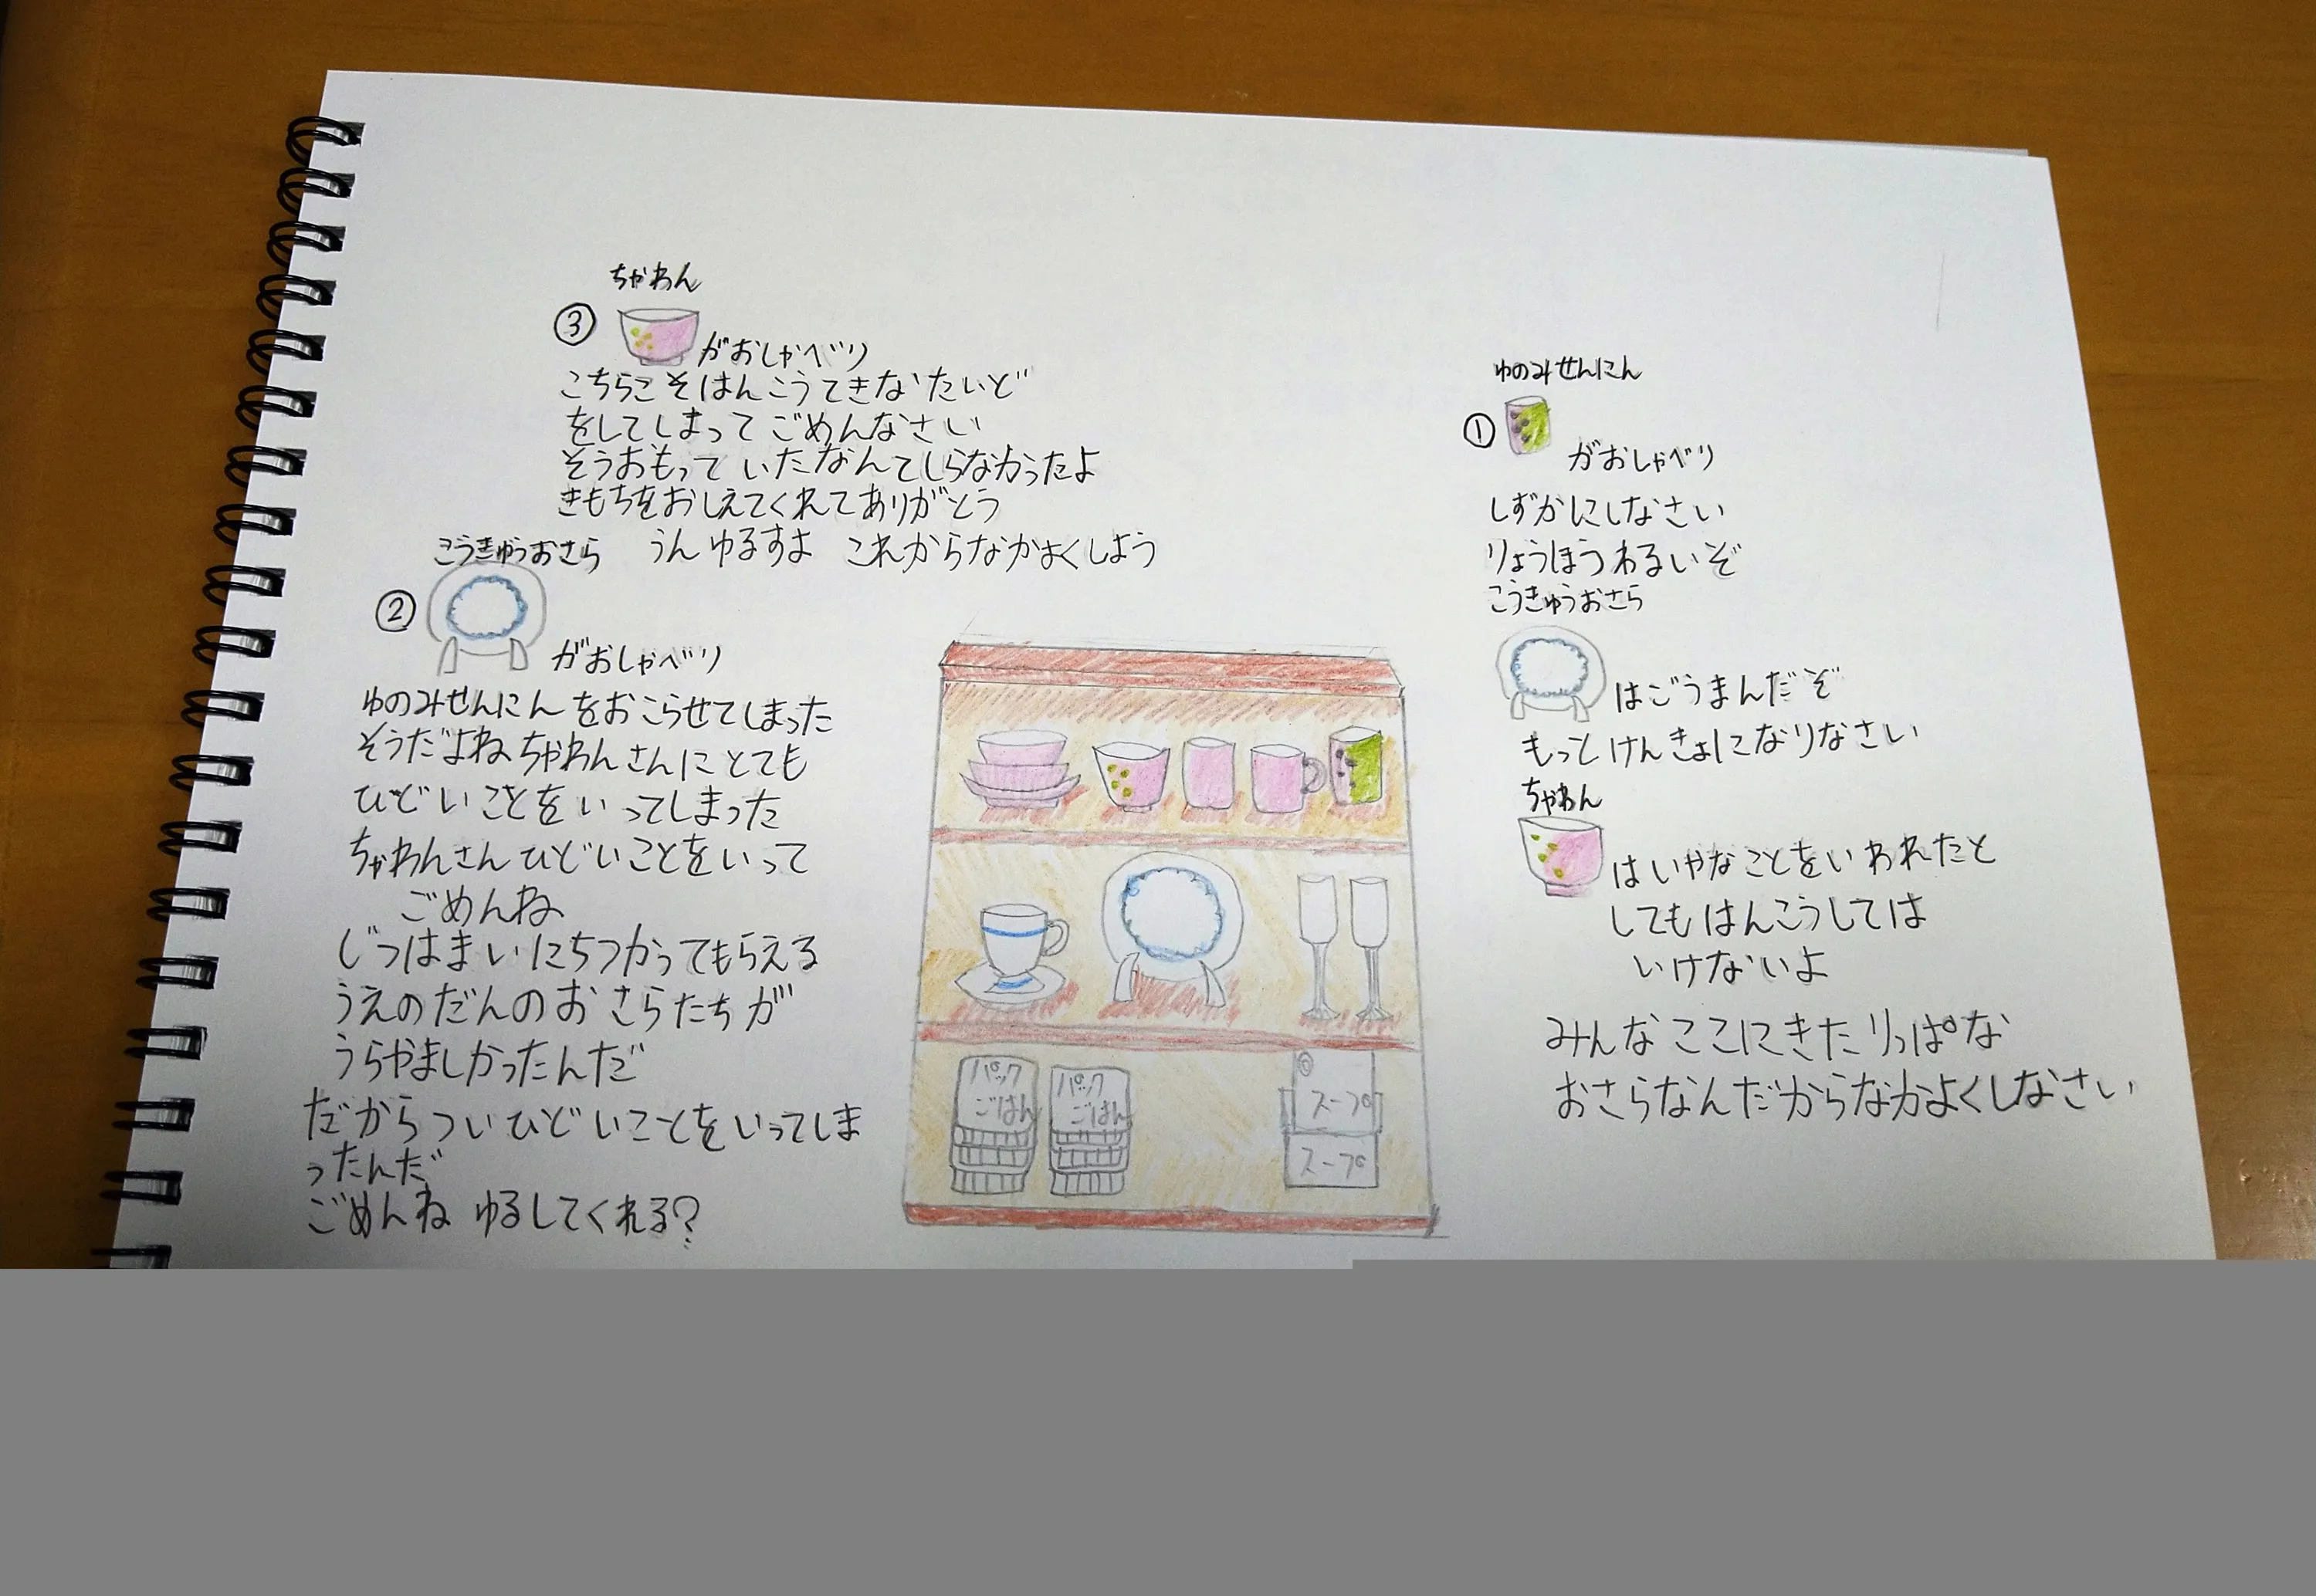 ゆのみせんにん
①
がおしゃべり
しずかにしなさい
りょうほうわるいぞ
こうきゅうおさら
はごうまんだぞ
もっとけんきょになりなさい
ちゃわん
はいやなことをいわれたと
してもはんこうしては
いけないよ
みんなここにきたりっぱな
おさらなんだからなかよくしなさい
こうきゅうおさら
②
がおしゃべり
ゆのみせんにんをおこらせてしまった
そうだよねちゃわんさんにとても
ひどいことをいってしまった
ちゃわんさんひどいことをいって
ごめんね
じつはまいにちつかってもらえる
うえのだんのおさらたちが
うらやましかったんだ
だからついひどいことをいってしま
ったんだ
ごめんね ゆるしてくれる?
ちゃわん
③
がおしゃべり
こちらこそはんこうてきなたいど
をしてしまってごめんなさい
そうおもっていたなんてしらなかったよ
きもちをおしえてくれてありがとう
うんゆるすよ これからなかよくしよう
パック
ごはん
パック
ごはん
スープ
スープ